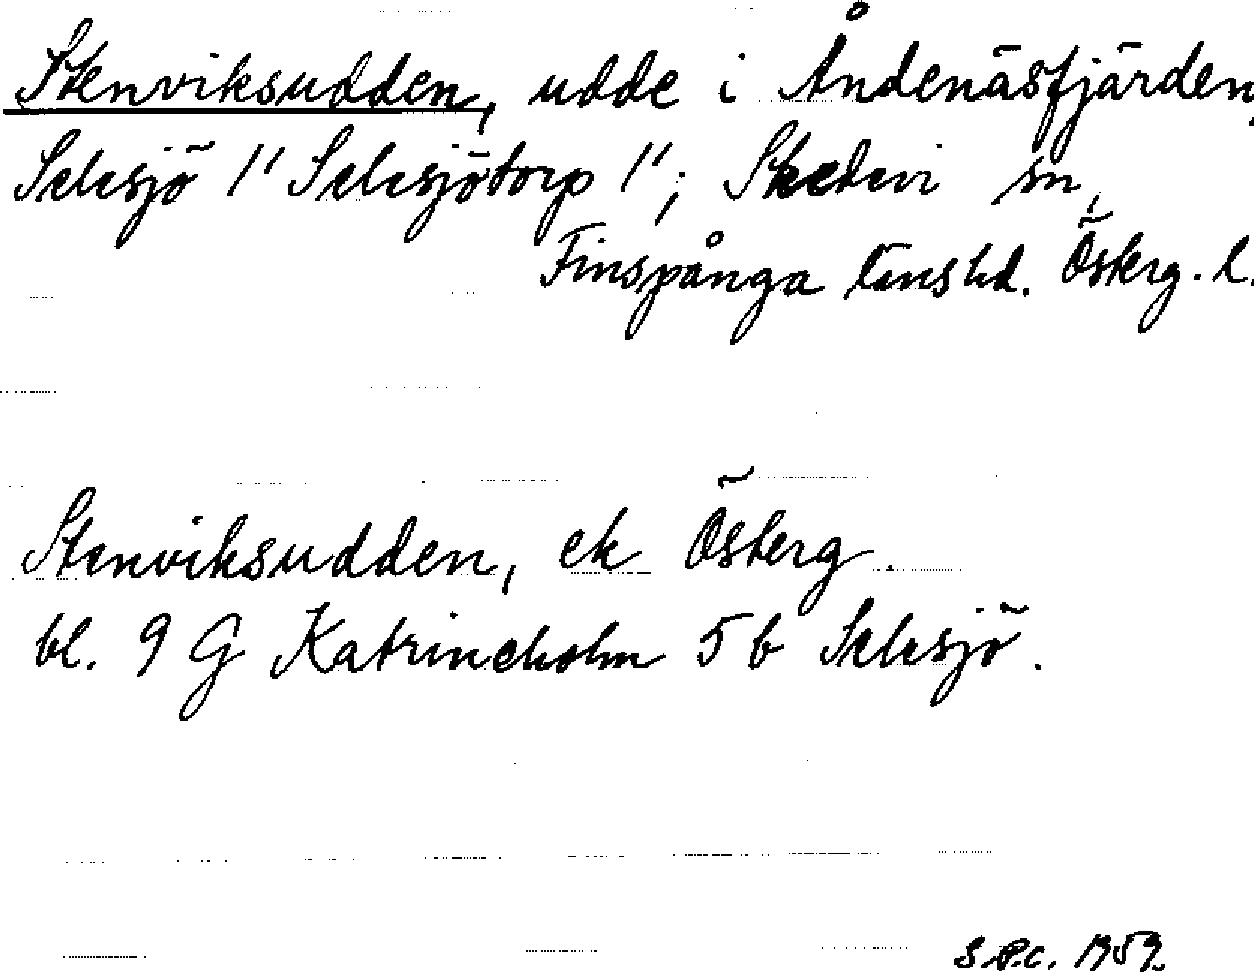 Stenviksudden, udde i Åndenäsfjärden,
Selesjö 1/1 Selesjötorp 1/1; Skedevi sn,
Finspånga länshd. Österg. l.
Stenviksudden, ek Österg.
bl. 9 G Katrineholm 5 b Selesjö.
S.P.C. 1959.